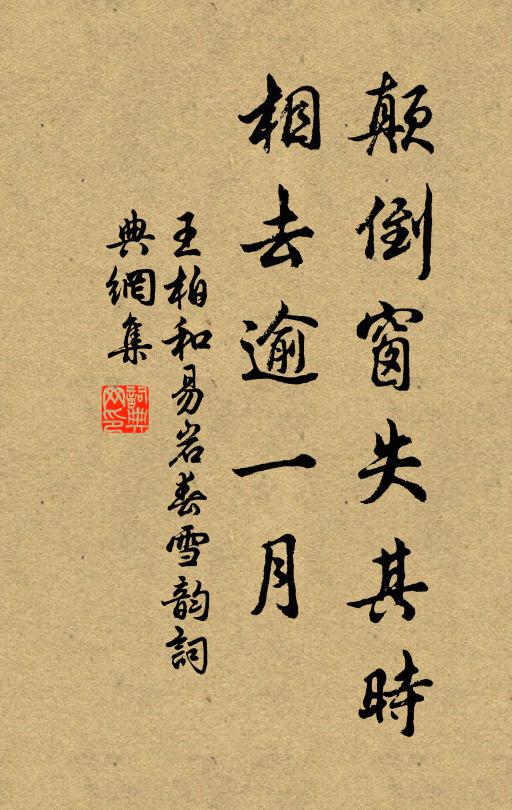 颠倒窗失其時
相去逾一月
王柏和易岩春雪韵詞
典網集
詞典网印